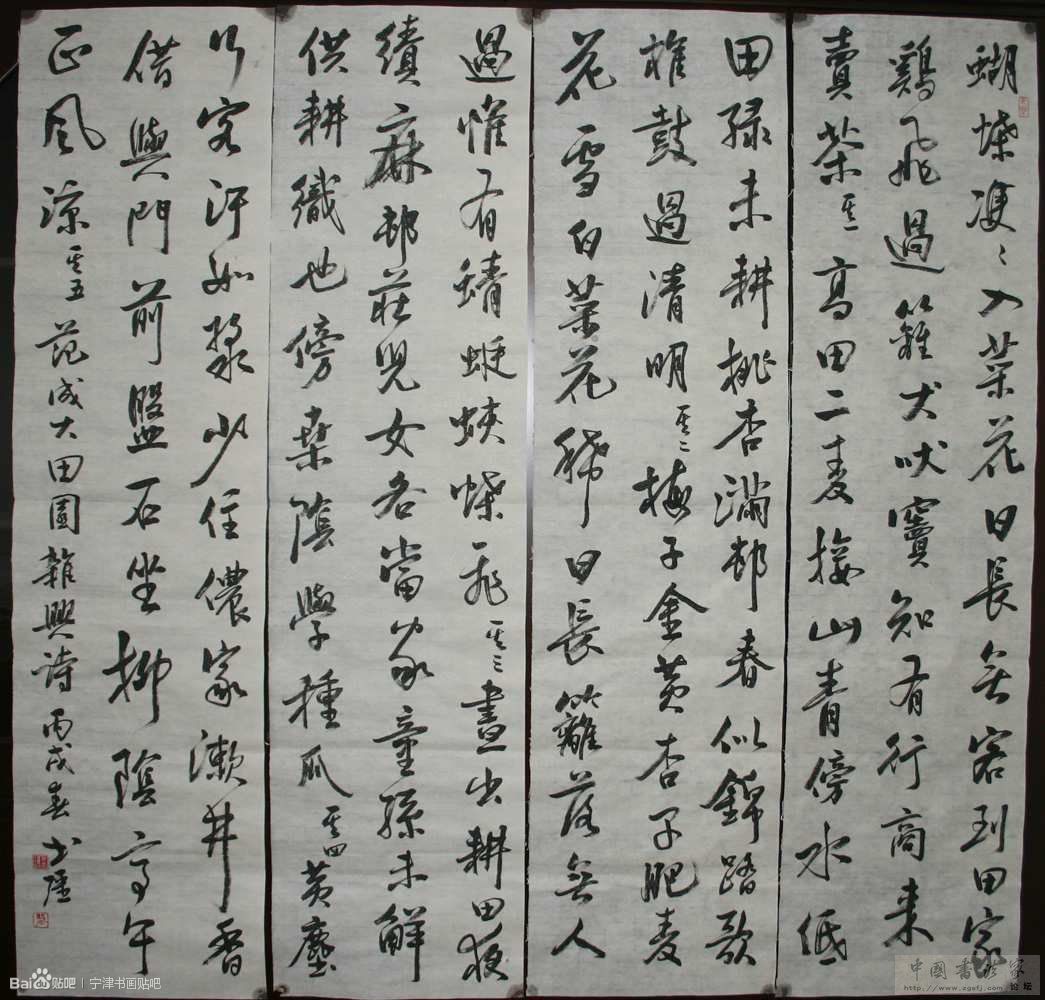 蝴蝶双〻入菜花日長無客到田家
鷄飛過籬犬吠竇知有行商來
賣茶其一高田二麦接山青傍水低
田緑未耕桃杏滿邨春似錦踏歌
椎鼓過清明其二梅子金黄杏子肥麦
花雪白菜花稀日長籬落無人
過惟有蜻蜓蛱蝶飛其三晝出耕田夜
績麻邨莊児女各當家童孫未解
供耕織也傍桑陰學種瓜其四黄塵
行客汗如漿少住儂家漱井香
借與門前盤石坐柳陰亭午
正風涼其五范成大田園雜興詩丙戌春
Baidu贴吧|宁津书画贴吧
中國書法家
论坛
http://www.zgsfj.com